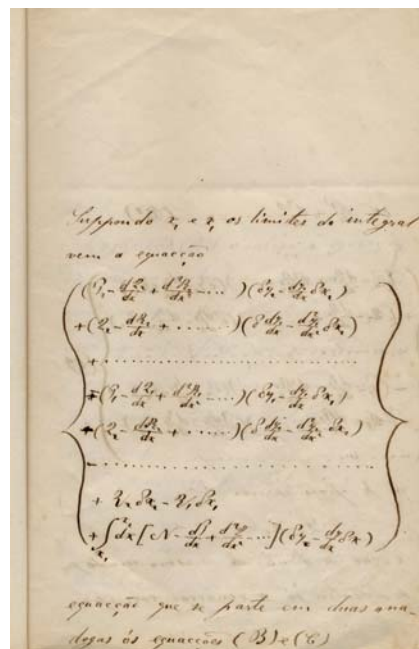 Suppondo x, e x, os limites do integral
vem a equacção
(P₂ - dQ₂/dx + d²R₂/dx² - ....)(δy₂ - dy₂/dx δx₂)
+(Q₂ - dR₂/dx + ......)(δ dy₂/dx - d²y₂/dx² δx₂)
+..............................
-(P₁ - dQ₁/dx + d²R₁/dx² - ....)(δy₁ - dy₁/dx δx₁)
-(Q₁ - dR₁/dx + ......)(δ dy₁/dx - d²y₁/dx² δx₁)
-..............................
+ V₂δx₂ - V₁δx₁
+∫dx[N - dP/dx + d²Q/dx² - ...](δy - dy/dx δx)
equacção que se parte em duas ana-
logas ás equacções (B) e (C)